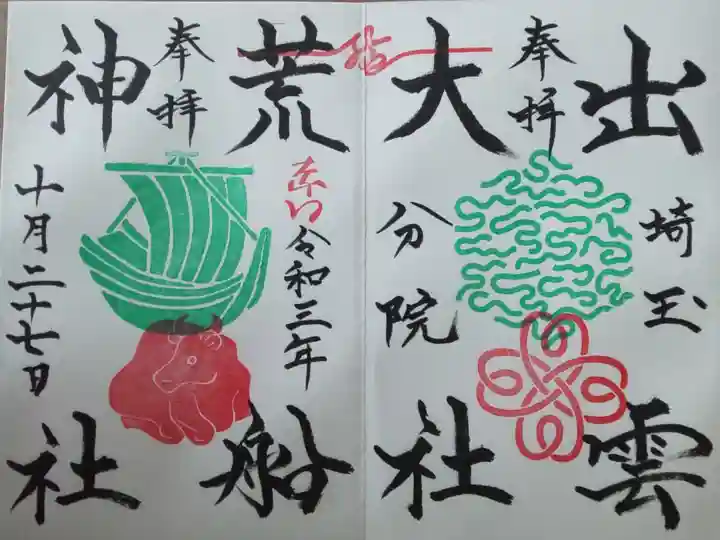 出雲
奉拝
埼玉
大社
分院
結
荒船
奉拝
令和三年
神社
十月二十七日